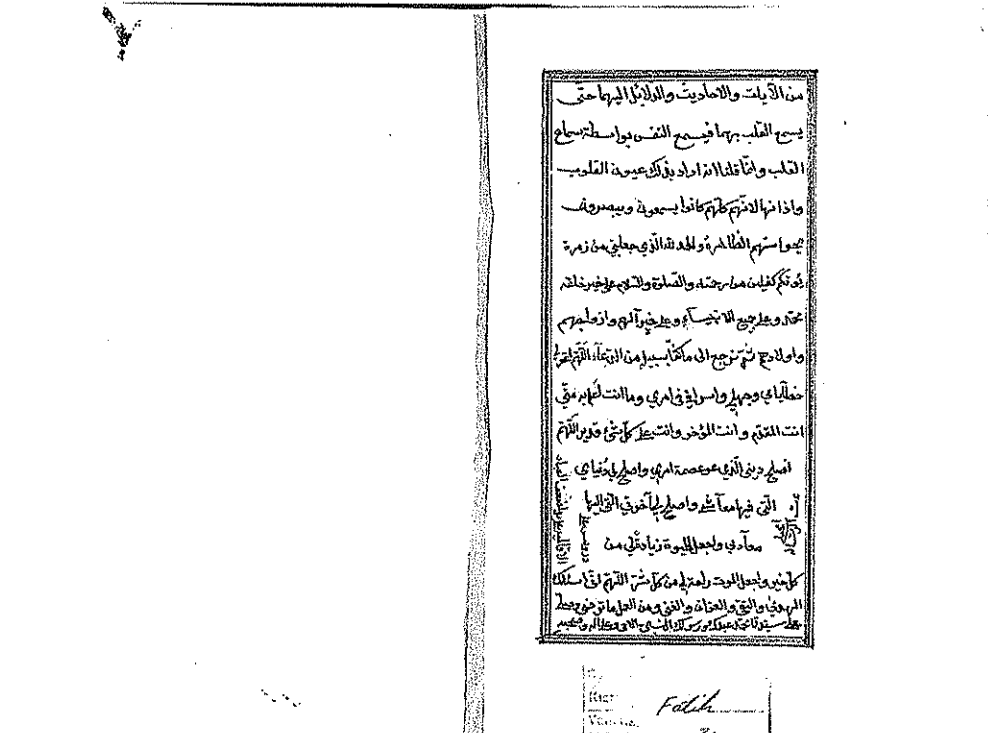 من الآيات والاحاديث والدلائل اليهما حتّى
يسمع القلب بهما فيسمع النفس بواسطة سماع
القلب وانّما قلنا انه اراد بذلك عيون القلوب
واذانها لانّهم كلّهم كانوا يسمعون ويبصرون
بحواستهم الظاهرة والحمد لله الّذي جعلني من زمرة
يؤتكم كفلين من رحمته والصّلوة والسّلام على خير خلقه
محمّد وعلى جميع الانبيآء وعلى خير آلهم وازواجهم
واولادهم ثمّ نرجع الى ما كنّا بسبيله من الدعآء اللّهمّ اغفر لي
خطاياي وجهلي واسرافي في امري وما انت اعلم به منّي
انت المقدّم وانت المؤخر وانت على كلّ شئ قدير اللّهمّ
اصلح ديني الّذي هو عصمة امري واصلح لي دنياي
الّتي فيها معاشي واصلح لي آخرتي الّتي اليها
معادي واجعل الحيوة زيادة لي من
كلّ خير واجعل الموت راحة لي من كلّ شرّ اللّهمّ انّي اسئلك
الهدى والتقى والعفاف والغنى ومن العمل ما ترضى وصلّ
على سيّدنا محمّد عبدك ورسولك النبي الامي وعلى آله وصحبه
Fatih